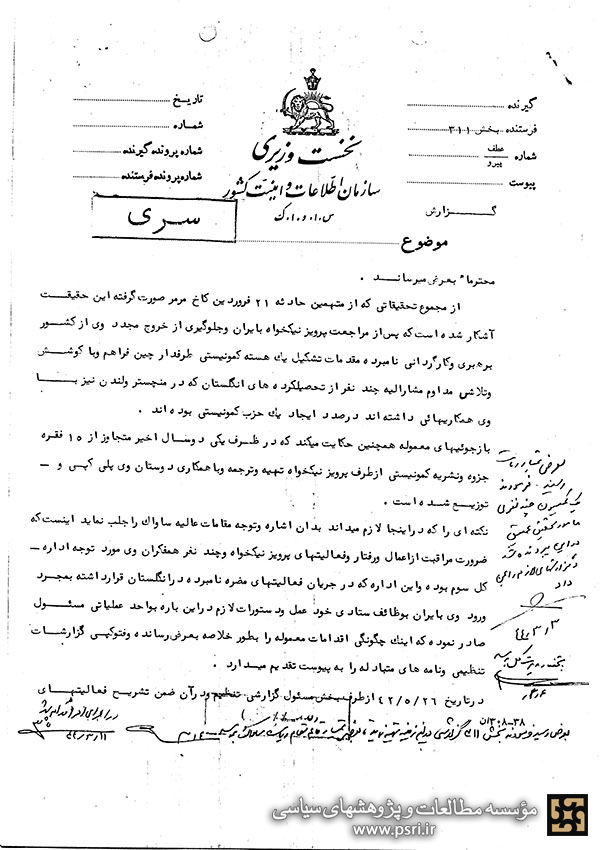 گیرنده
فرستنده بخش ۳۱۱
شماره عطف
پیرو
پیوست
گزارش
نخست وزیری
سازمان اطلاعات و امنیت کشور
س.ا.و.ا.ک
تاریخ
شماره
شماره پرونده گیرنده
شماره پرونده فرستنده
سری
موضوع
محترماً بعرض میرساند .
از مجموع تحقیقاتی که از متهمین حادثه ۲۱ فروردین کاخ مرمر صورت گرفته این حقیقت
آشکار شده است که پس از مراجعت پرویز نیکخواه بایران و جلوگیری از خروج مجدد وی از کشور
برهبری و کارگردانی نامبرده مقدمات تشکیل یك هسته کمونیستی طرفدار چین فراهم و با کوشش
و تلاش مداوم مشارالیه چند نفر از تحصیلکرده های انگلستان که در منچستر و لندن نیز با
وی همکاریهائی داشته اند درصدد ایجاد یك حزب کمونیستی بوده اند .
بازجوئیهای معموله همچنین حکایت میکند که در ظرف یکی دو سال اخیر متجاوز از ۱۵ فقره
جزوه و نشریه کمونیستی از طرف پرویز نیکخواه تهیه و ترجمه و با همکاری دوستان وی پلی کپی و -
توزیع شده است .
نکته ای را که در اینجا لازم میداند بدان اشاره و توجه مقامات عالیه ساواك را جلب نماید اینست که
ضرورت مراقبت از اعمال و رفتار و فعالیتهای پرویز نیکخواه و چند نفر همفکران وی مورد توجه اداره -
کل سوم بوده و این اداره که در جریان فعالیتهای مضره نامبرده در انگلستان قرار داشته بمجرد
ورود وی بایران بوظائف ستادی خود عمل و دستورات لازم در این باره بواحد عملیاتی مسئول
صادر نموده که اینك چگونگی اقدامات معموله را بطور خلاصه بعرض رسانده و فتوکپی گزارشات
تنظیمی و نامه های متبادله را به پیوست تقدیم میدارد .
در تاریخ ۴۲/۵/۲۶ از طرف بخش مسئول گزارشی تنظیم و در آن ضمن تشریح فعالیتهای
مؤسسه مطالعات و پژوهشهای سیاسی
www.psri.ir